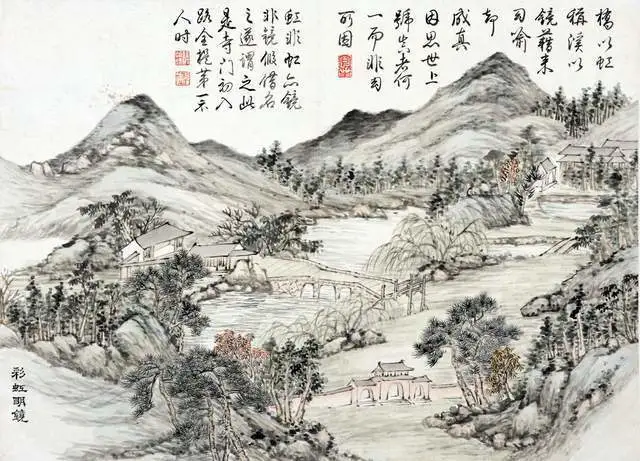 橋以虹
稱溪以
鏡藉來
司喻
却
成真
因思世上
號真者何
一而非司
所因
虹非虹亦鏡
非鏡假借名
之遂謂之此
是寺門初入
路全提第一示
人時
彩虹明鏡